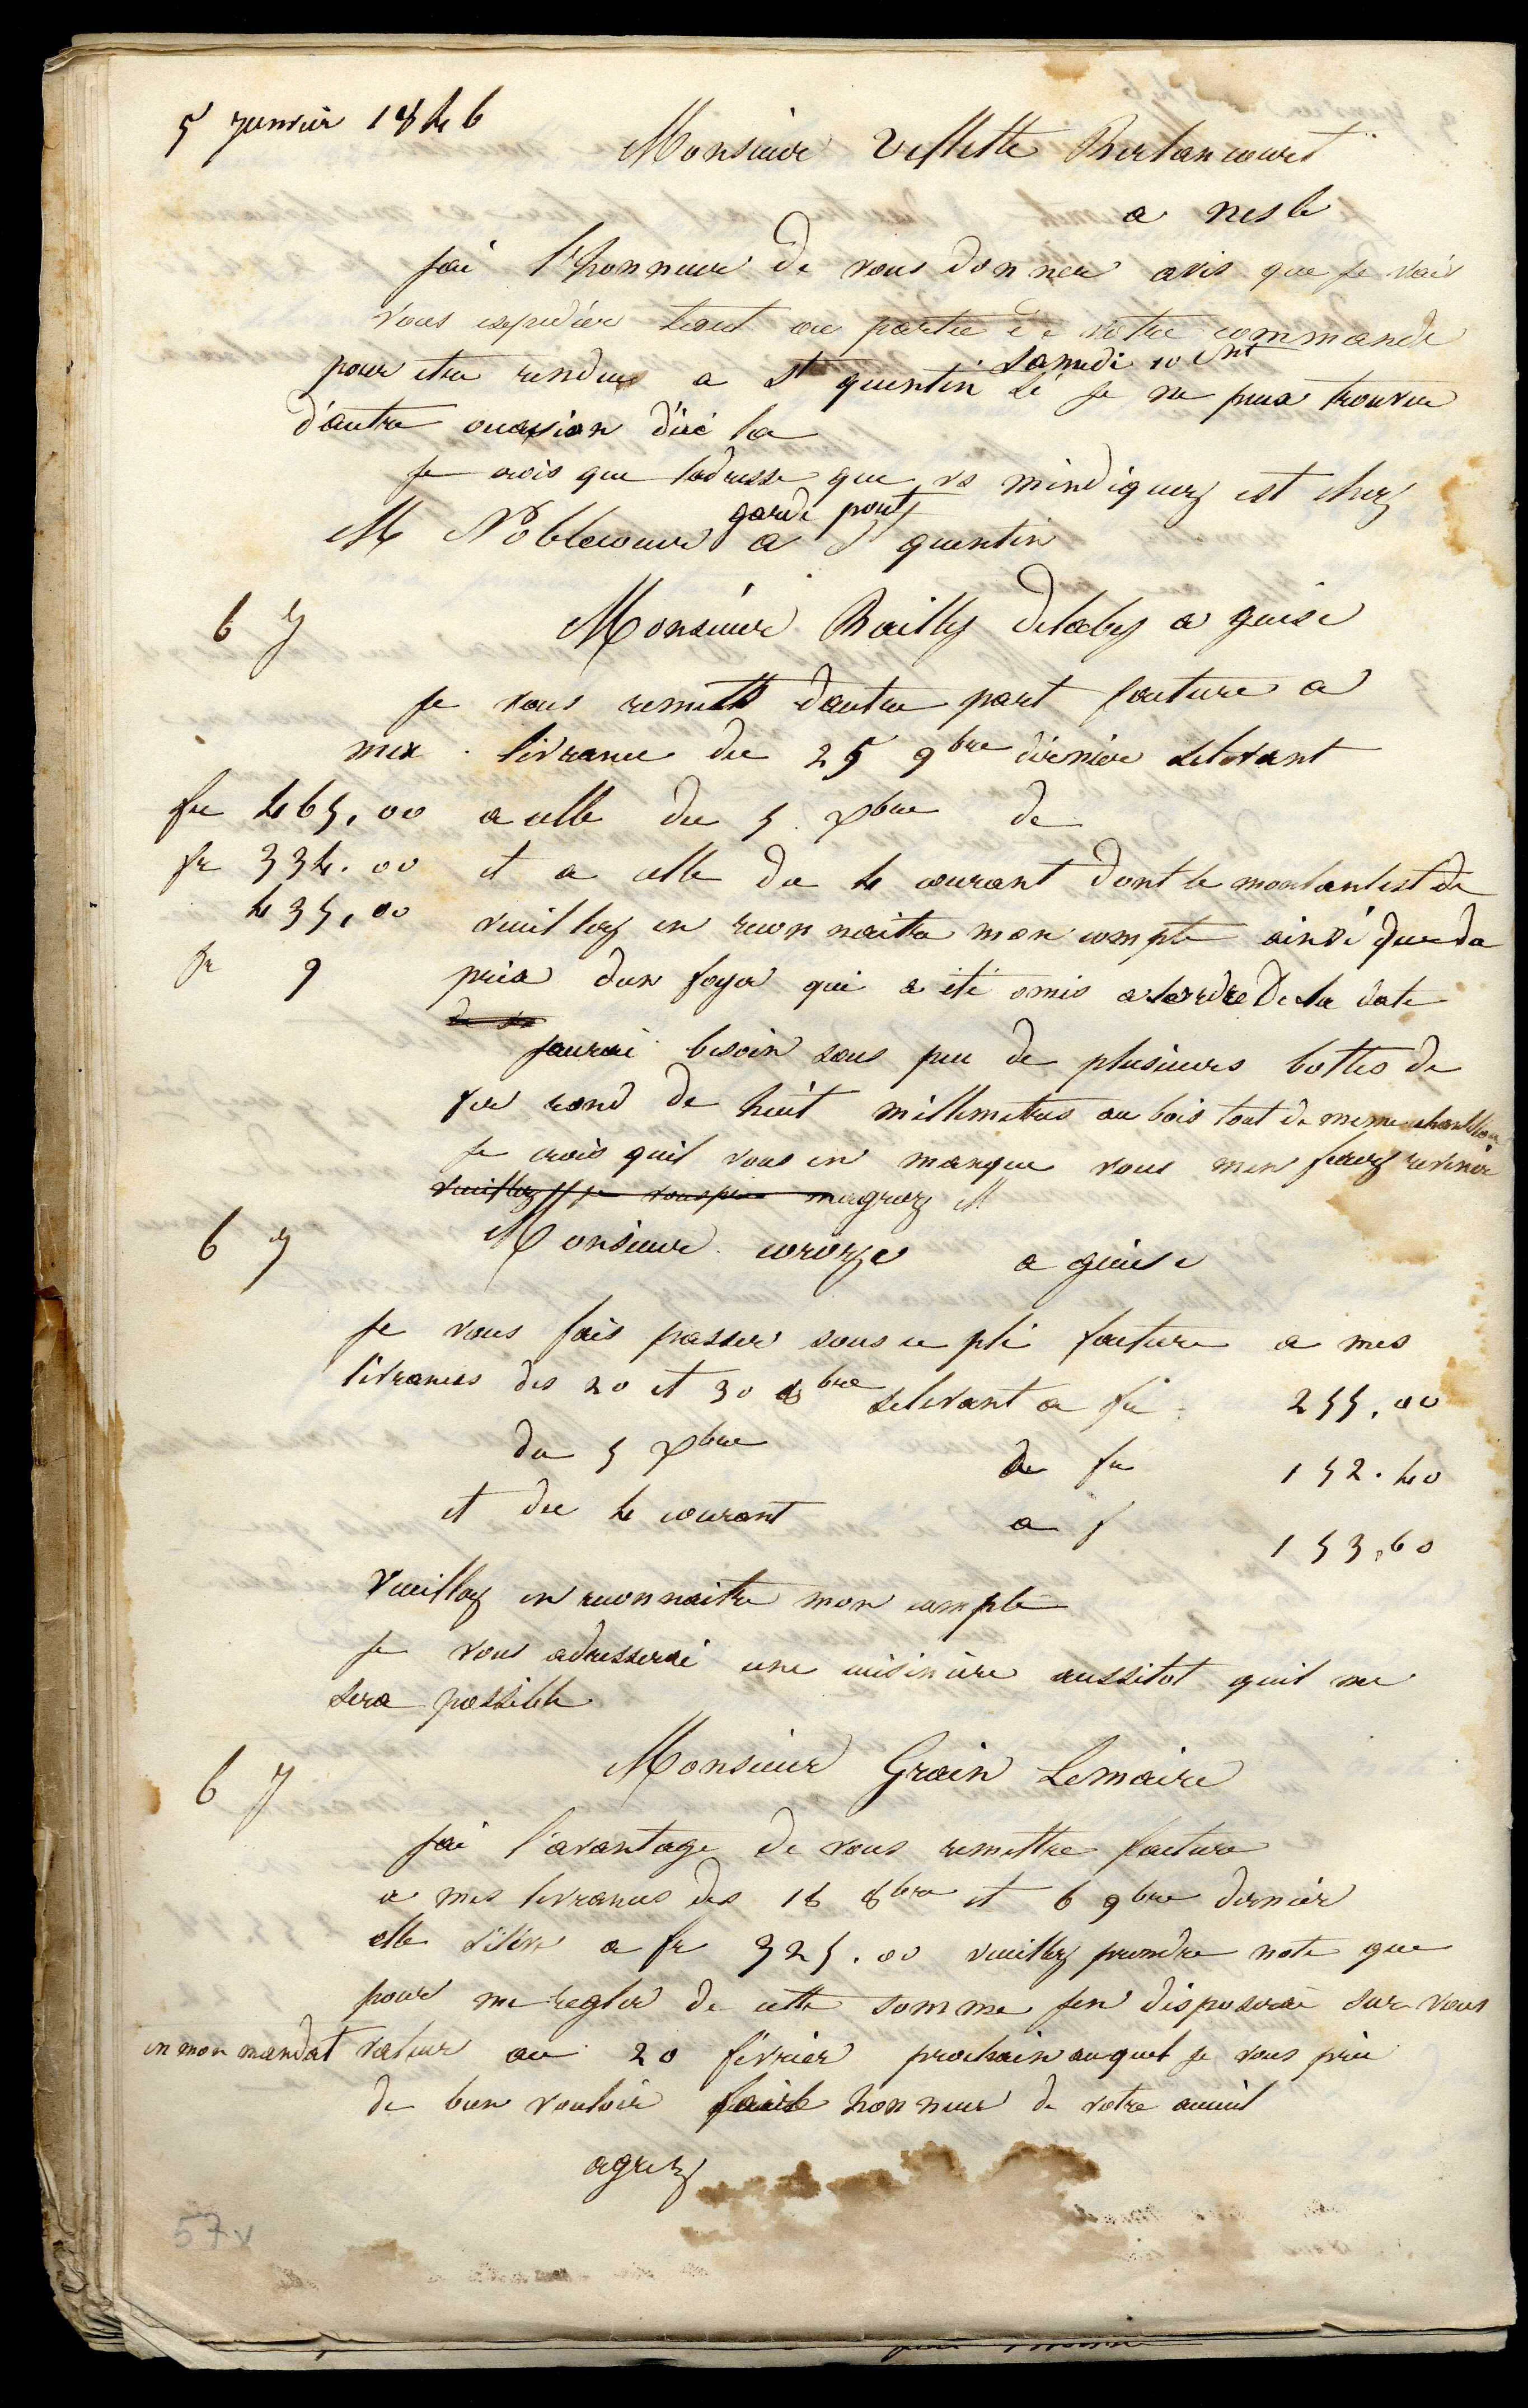 5 janvier 1846
Monsieur Veflette Berlancourt
a nesle
jai l'honneur de vous donner avis que je vais
vous expedier tout ou partie de votre commande
pour etre rendues a St quentin samedi 10 cnt si je ne peux trouver
d'autre occasion d'ici la
je crois que ladresse que vs mindiquez est chez
M Noblecourt garde pont a St quentin
6 J Monsieur Bailly Delaby a guise
je vous remets dautre part facture a
mex livrance du 25 9bre dernier selevant
fr 465,00 a celle du 5 Xbre de
fr 334.00 et a celle du 4 courant dont le montant est de
435,00 veuillez en reconnaitre mon compte ainsi que du
fr 9 prix dun foyer qui a été omis a lordre De la date
de la
jaurai besoin sous peu de plusieurs bottes de
fer rond de huit millimetres au bois tout de meme echantillon
je crois quil vous en manque vous men ferez revenir
veuillez je vous prie magreez M
6 J Monsieur coroze a guise
je vous fais passer sous ce pli facture a mes
livrances des 20 et 30 8bre selevant a fr 255,00
du 5 Xbre de fr 152.40
et du 4 courant a f 153,60
Veuillez en reconnaitre mon compte
je vous adresserai une cuisinière aussitot quil me
sera possible
6 J Monsieur Grain Lemaire
jai l'avantage de vous remettre facture
a mes livrances des 18 8bre et 6 9bre dernier
elle s'élève a fr 325.00 veuillez prendre note que
pour me regler de cette somme jen disposerai sur vous
en mon mandat valeur au 20 février prochain auquel je vous prie
de bien vouloir faire honneur de votre acceuil
agréez
57v